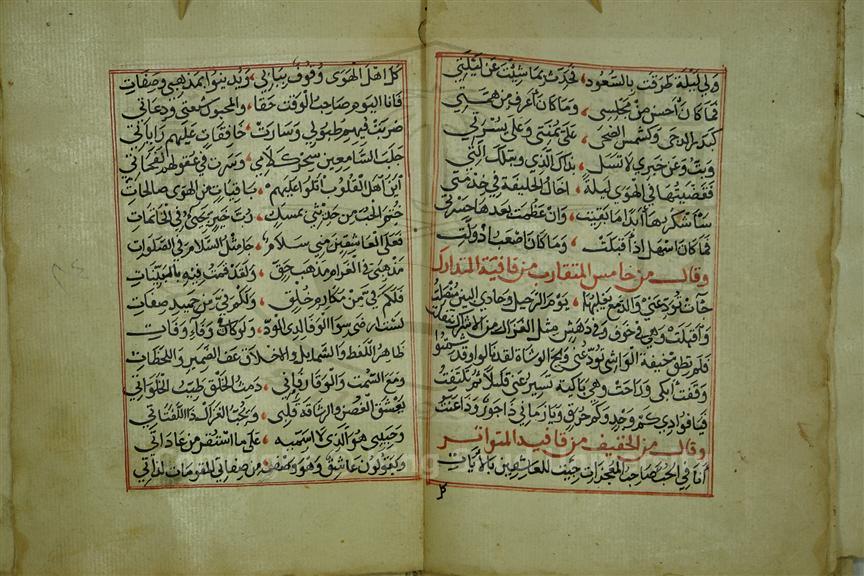 ولي ليلة طرقت بالسعود ، تحدث بما شيت عن ليلتي
فما كان احسن من مجلسي ، وما كان ارفع من همتي
كبدر الدجى وكشمس الضحى ، على يمنتي وعلى يسرتي
وبت وعن خبري لا تسل ، بذاك الذي وبتلك التي
فقضيتها في الهوى ليلة ، اخال الخليفة في خدمتي
سأشكرها ابدا ما بقيت ، وان عظمت بعدها حسرتي
فما كان اسهل اذ اقبلت ، وما كان اصعب اذ ولت
وقال من خامس المتقارب من قافية المتدارك
جاءت تودعني والدمع يغلبها ، يوم الرحيل وحادي البين منصلت
واقبلت وهي في خوف وفي دهش مثل الغزال من الاشراك ينفلت
فلم تطق خيفة الواشي تودعني ويح الوشاة لقد قالوا وقد شمتوا
وقفت ابكي وراحت وهي باكية تسير عني قليلا ثم تلتفت
فيا فوادي كم وجد وكم حرق ويا زماني ذا جور وذا عنت
وقال من الخفيف من قافية المتواتر
أنا في الحب صاحب المعجزات جيت للعاشقين بالايات
كل
كل اهل الهوى وقوف ببابي ، ويدينوا بمذهبي وصفات
فانا اليوم صاحب الوقت حقا ، والمحبون شيعتي ودعاتي
ضربت فيهم طبولي وسارت ، خافقات عليهم راياتي
خلب السامعين سحر كلامي ، وسرت في عقولهم نفحاتي
اين اهل القلوب اتلوا عليهم ، باقيات من الهوى صالحات
ختم الحب من حديثي بمسك ، رب خير يجئ في الخاتمات
فعلى العاشقين مني سلام ، جا مثل السلام في الصلوات
مذهبي في الغرام مذهب حق ، ولقد قمت فيه بالبينات
فلكم في من مكارم خلق ، ولكم في من حميد صفات
لست ارضى سوا الوفا لذي الود ، ولو كان وفاء وفات
طاهر اللفظ والشمايل والاخلاق عف الضمير واللحظات
ومع الصمت والوقار فاني ، دمث الخلق طيب الخلوات
يعشق الغصن والرشاقة قلبي ، ويحب الغزال ذا اللفتات
وحبيبي هو الذي لا اسميه ، على ما استقر من عاداتي
ويقولون عاشق وهو وصف ، من صفاتي المقومات لذاتي